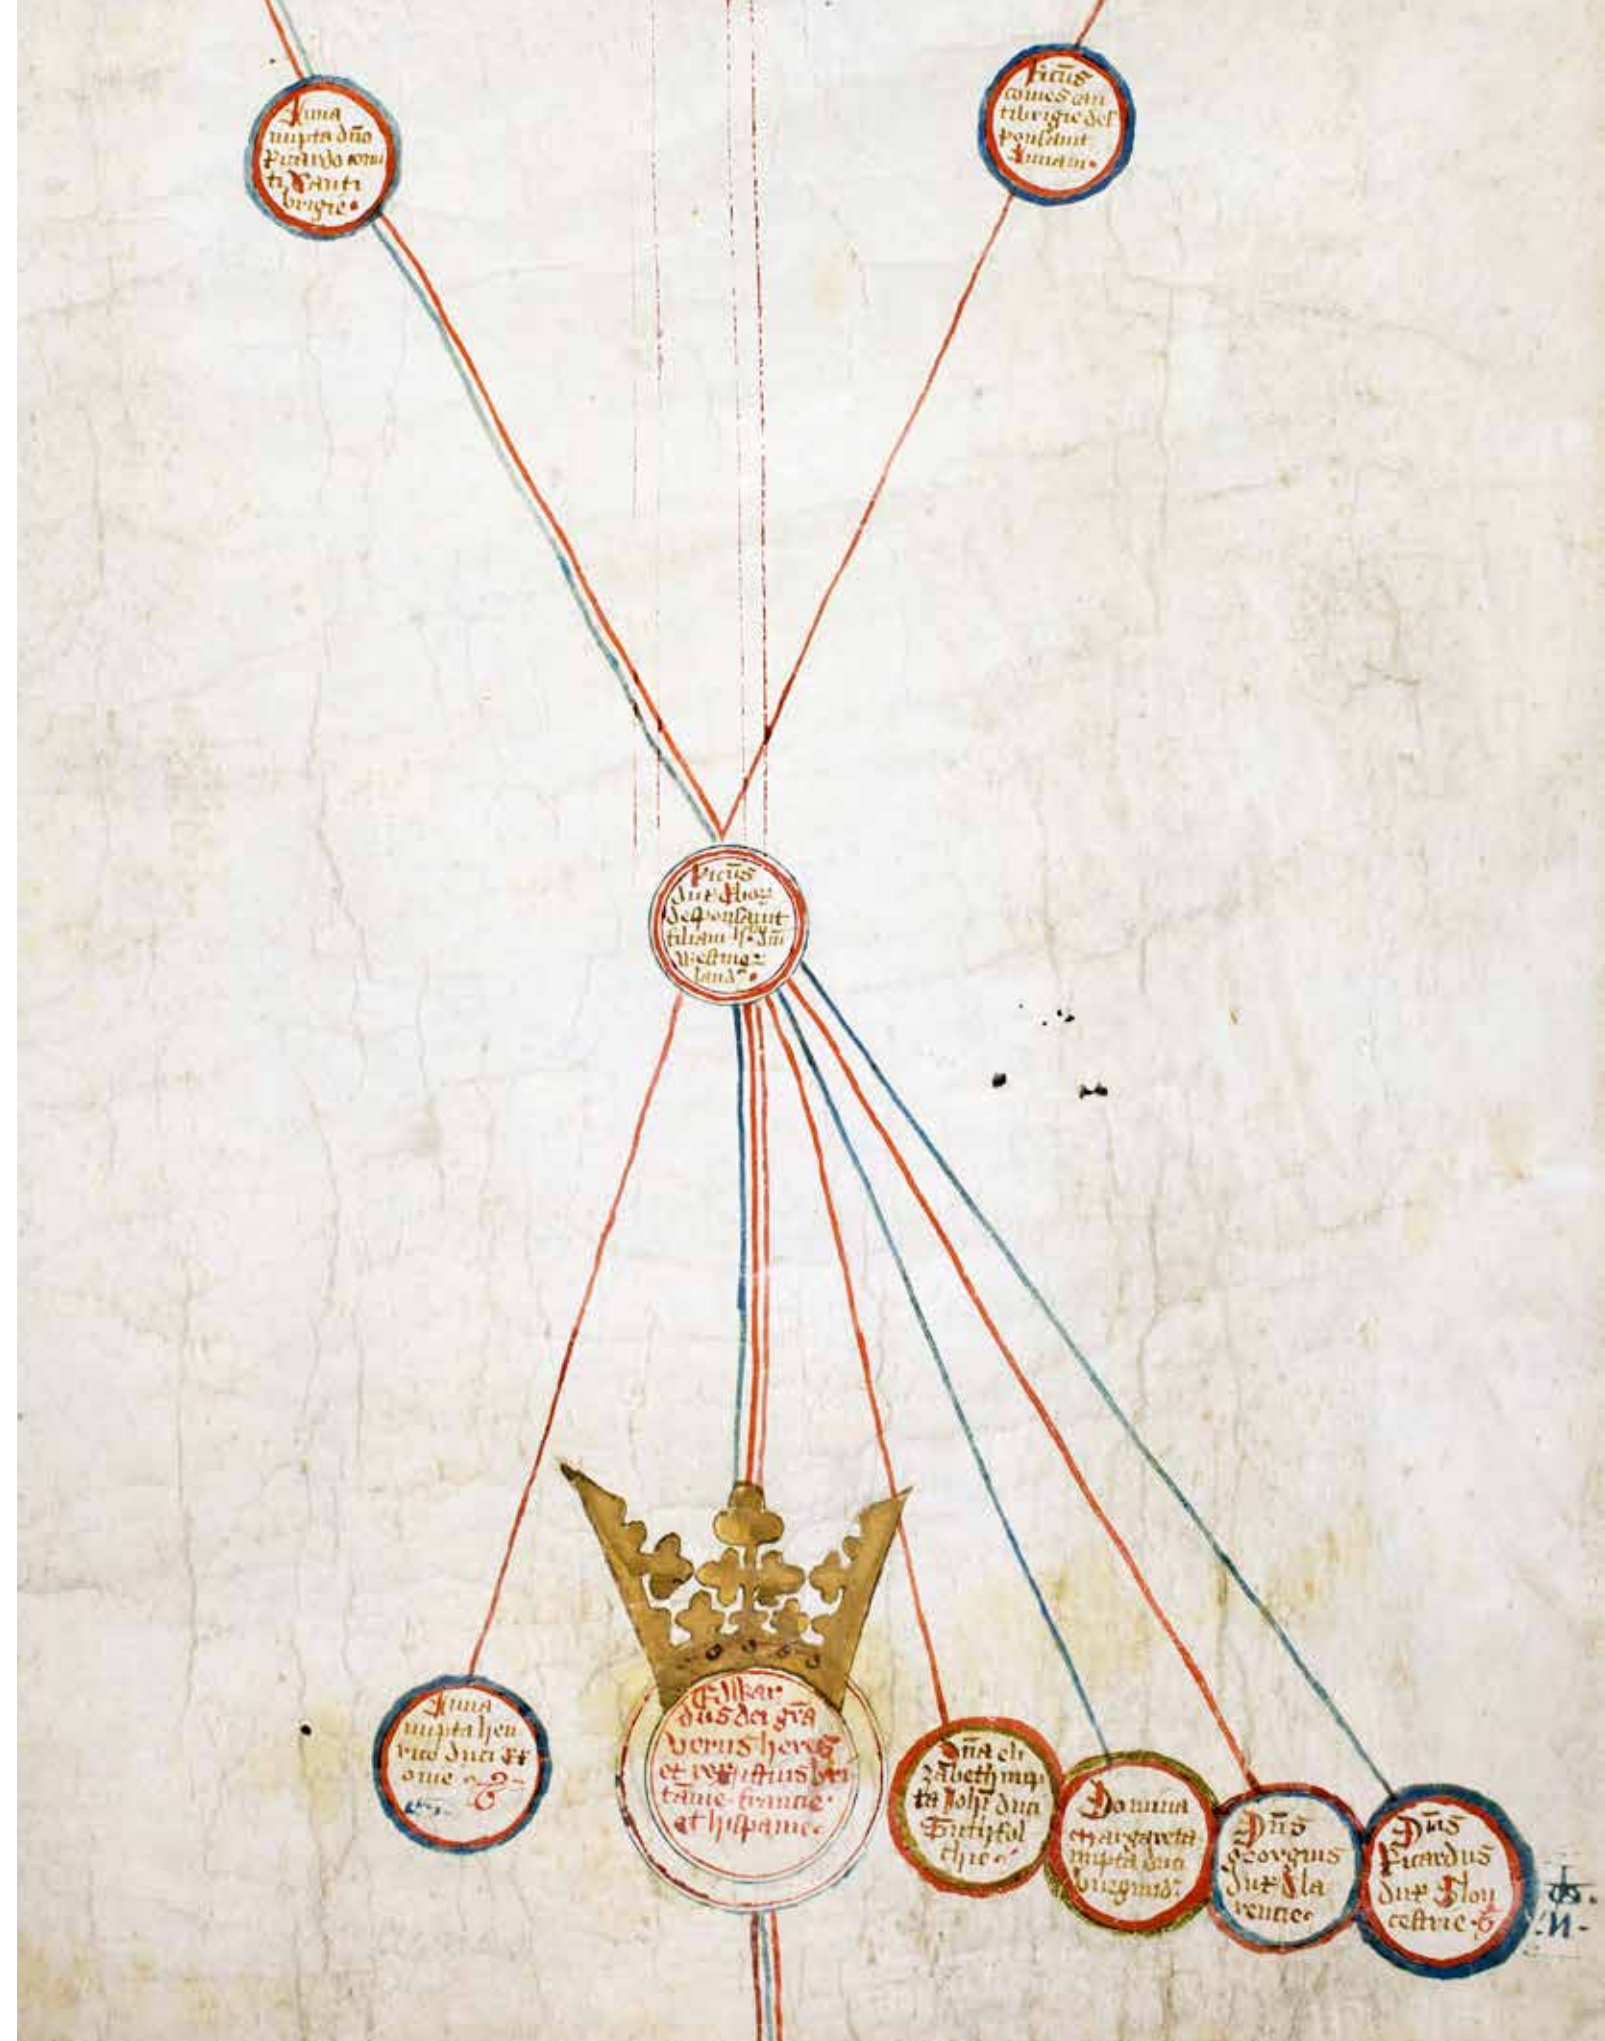 Anna
nupta dño
Ricardo comi
ti Canti
brigie.
Ricūs
comes can
tibrigie des
ponsavit
Annam.
Ricūs
dux Ebor
desponsavit
filiam dñi
Westmor
land.
Anna
nupta hen
rico duci Ex
onie
Edwar
dus dei grā
verus heres
et bri
tānie francie.
et hispanie.
Dñā eli
zabeth nup
ta Joħi duci
Suthfol
chie.
Domina
margareta
nupta duci
burgund
Dñs
Georgius
dux Cla
rencie.
Dñs
Ricardus
dux Glou
cestrie.
.N.